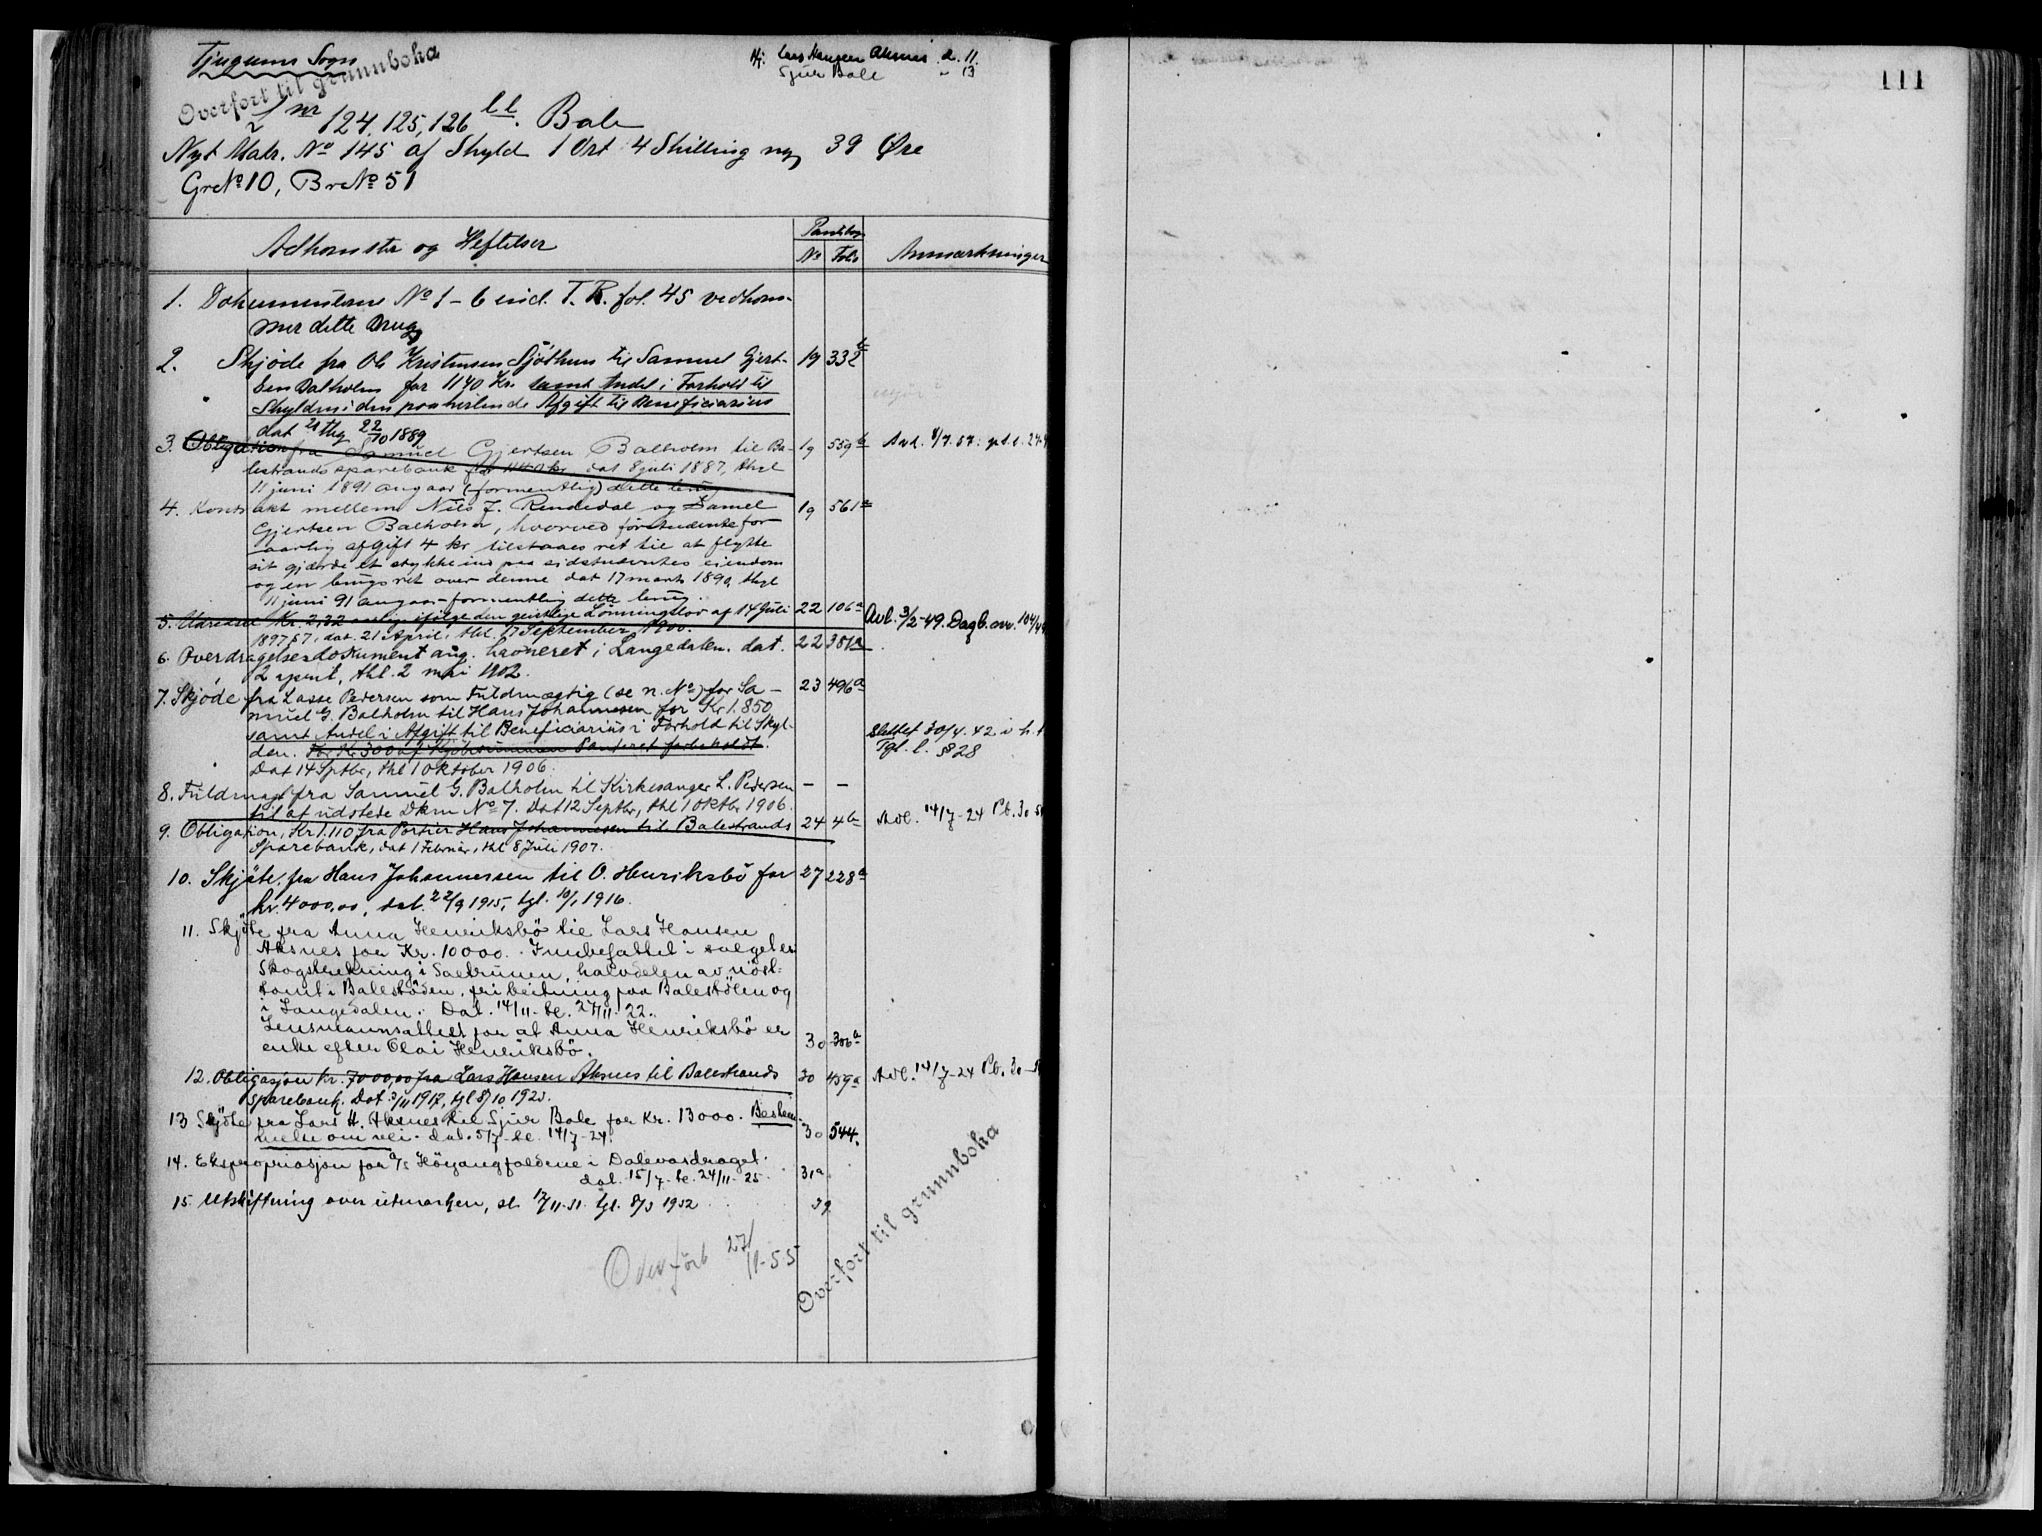 Tjugums Sogn
Overført til grunnboka
Hj: Lars Hansen Aksnes d. 11.
Sjur Bale " 13
Lnr 124, 125, 126 ll. Bale
Nyt Matr. No 145 af Skyld 1 Ort 4 Skilling ny 39 Øre
Gr No 10, Br No 51
111
Adkomster og Heftelser
Pantebog
No Folio
Anmærkninger
1. Dokumenterne No 1-6 incl. T. R. fol. 45 vedkom-
mer dette Brug
2. Skjøde fra Ole Kristensen Sjøthun til Samuel Gjert- 19 332 b
sen Balholm for 1140 Kr. samt Andel i Forhold til
Skylden i den paaheilende Afgift til Beneficiarius
dat 21 thg 22/10 1889
3. Obligation fra Samuel Gjertsen Balholm til Ba- 19 559 b Avl. 4/7.07:
lestrands sparebank for 1140 kr dat 8 juli 1887, thgl
11 juni 1891 angaar (formentlig) dette brug
4. Kontrakt mellem Nils J. Rendedal og Samel 19 561 a
Gjertsen Balholm, hvorved førstnævnte for
aarlig afgift 4 kr tilstaaes ret til at flytte
sit gjærde et stykke ind paa sidstnævntes eiendom
og en brugsret over denne dat 17 marts 1890, thgl
11 juni 91 angaar formentlig dette brug.
5. Udredsel Kr. 2,32 aarlig ifølge den geistlige Lønningslov af 14 Juli 22 106 a Avl. 3/2-49. Dagb. nr. 104/49
1897 § 7, dat. 21 April, thl. 17 September 1900.
6. Overdragelsesdokument ang. havneret i Langedalen. dat. 22 381 a
2 april, thl. 2 mai 1902.
7. Skjøde fra Lasse Pedersen som Fuldmægtig (se n. No) for Sa- 23 496 a
muel G. Balholm til Hans Johannesen for Kr 1.850
samt Andel i Afgift til Beneficiarius i Forhold til Skyl-
den. For Kr 300 af Kjøbesummen Panteret forbeholdt.
Dat 14 Sptbr, thl 1 Oktober 1906.
Slettet 30/4. 42 i h. t.
Tgl. l. § 28
8. Fuldmagt fra Samuel G. Balholm til Kirkesanger L. Pedersen — —
til at udstede Dkm No 7. Dat 12 Septbr, thl 1 Oktbr 1906.
9. Obligation, Kr 1.110 fra Portier Hans Johannesen til Balestrands 24 4 b Avl. 14/7-24 Pb. 30
Sparebank, dat 1 Februar, thl 8 Juli 1907.
10. Skjøte fra Hans Johannessen til O. Henriksbø for 27 228 a
kr. 4000,00, dat. 22/9 1915, tgl. 10/1 1916.
11. Skjøte fra Anna Henriksbø til Lars Hansen
Aksnes for Kr. 10000. Innbefattet i salget er
Skogstrekning i Saetrunen, halvdelen av nøst-
tomt i Balestøden, fri beitning paa Balestølen og
i Langedalen. Dat. 14/11 - tl. 27/11 - 22.
Lensmannsattest for at Anna Henriksbø er
enke efter Olai Henriksbø. 30 306 a
12. Obligasjon kr. 7000,00 fra Lars Hansen Aksnes til Balestrands 30 459 a Avl. 14/7-24 Pb. 30
Sparebank. Dat 3/11 1917, tgl 8/10 1923.
13 Skjøte fra Lars H. Aksnes til Sjur Bale for Kr. 13000. Bestem-
melse om vei. dat. 5/7 - tl. 14/7 - 24. 30 544.
14. Ekspropriasjon for a/s Høyangfaldene i Dalevasdraget.
dat. 15/7 - tl. 24/11 - 25. 31 a
15. Utskiftning over utmarken, sl. 17/11.51. tgl. 8/3 1952 39
Overført 27/11-55
Overført til grunnboka